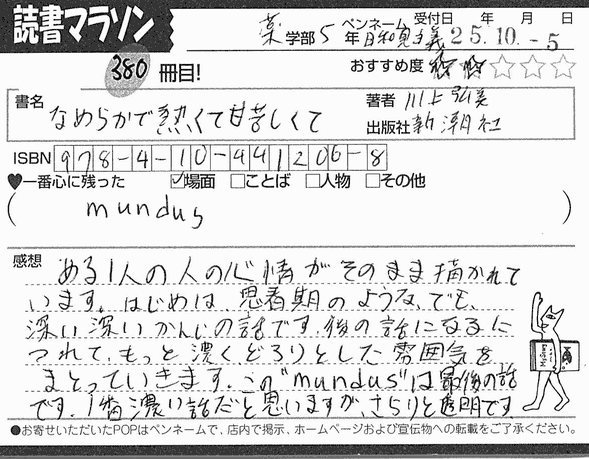 読書マラソン
薬学部5年 ペンネーム 日和見主義 受付日 年 月 日 25.10.-5
380冊目!
おすすめ度 ★★☆☆☆
書名 なめらかで熱くて甘苦しくて
著者 川上弘美
出版社 新潮社
ISBN 978-4-10-441206-8
♥一番心に残った ☑場面 □ことば □人物 □その他
( mundus )
感想 ある1人の人の心情がそのまま描かれて
います。はじめは、思春期のような、でも、
深い深いかんじの話です。後の話になるに
つれて、もっと濃く、どろりとした雰囲気を
まとっていきます。この"mundus"は最後の話
です。1番濃い話だと思いますが、さらりと透明です。
●お寄せいただいたPOPはペンネームで、店内で掲示、ホームページおよび宣伝物への転載をご了承ください。